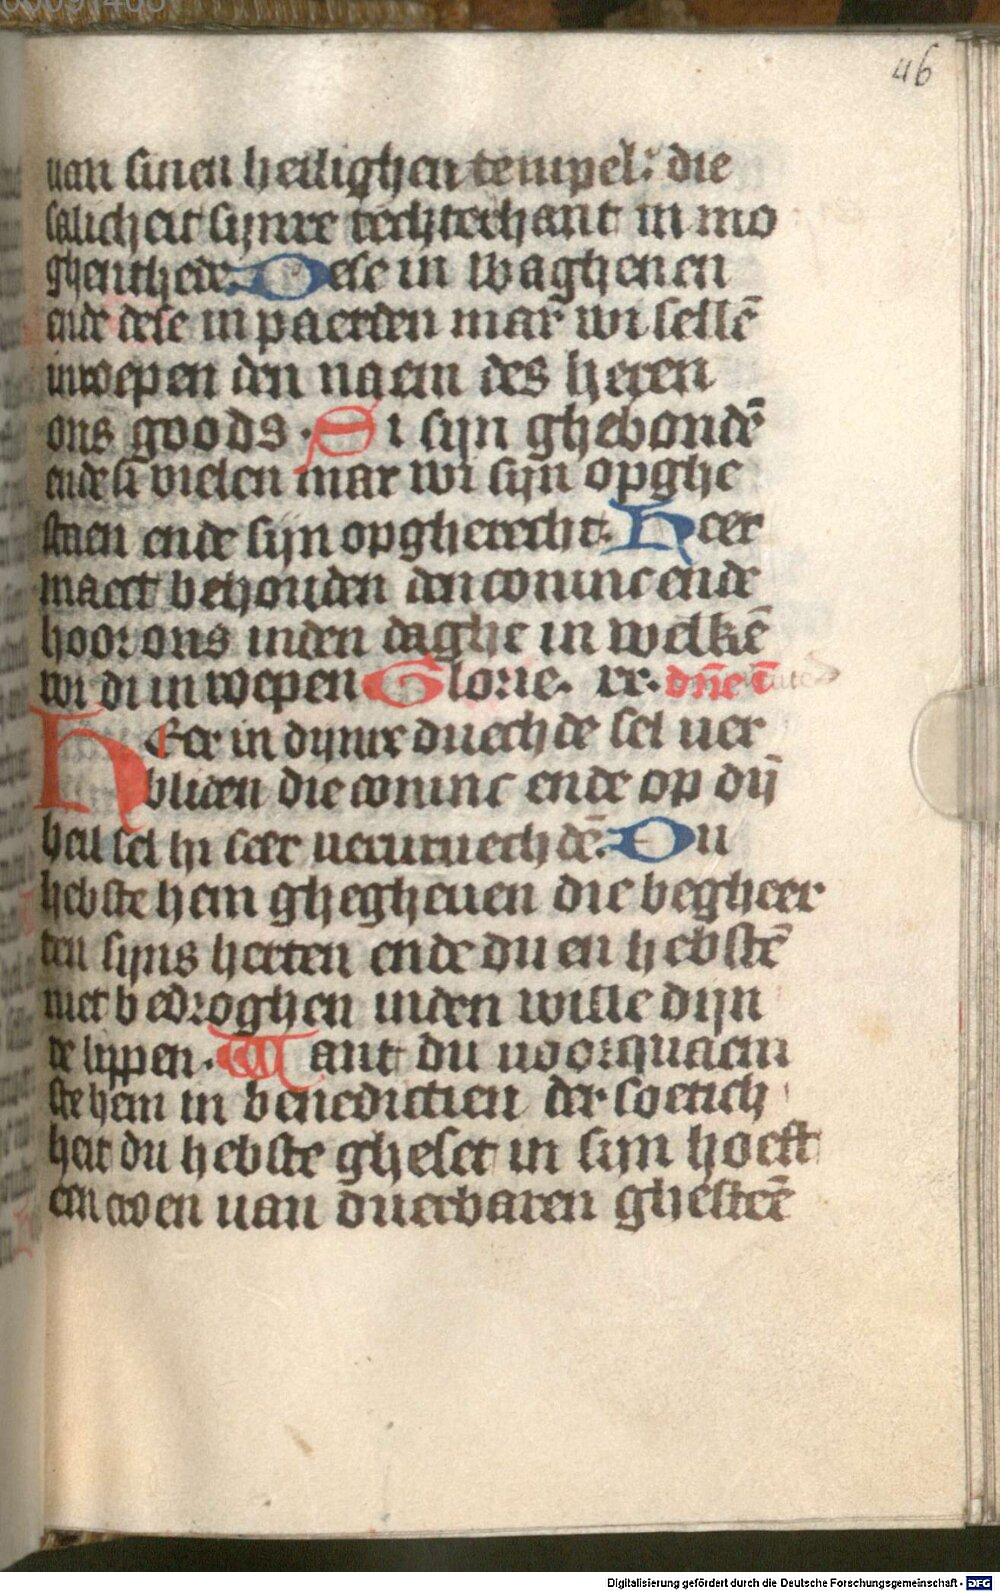 46
uan sinen heilighen tempel: die
salicheit synre rechterhant in mo
ghenthede. Dese in waghenen
ende dese in paerden mar̄ wi sellē
inroepen den naem des heren
ons goods. Si sijn ghebondē
ende si vielen mar wi sijn opghe
staen ende sijn opgherecht. Heer
maect behouden den coninc ende
hoor ons inden daghe in welkē
wi di in roepen Glorie. xx. dn̄e ī
HEer in dynre duechde sel uer
bliden die coninc ende op dyn̄
heil sel hi seer ueruruechdē. Du
hebste hem ghegheuen die begheer
ten syns herten ende du en hebstē
niet bedroghen inden wille dijn
re lippen. Want du uoorquaem
ste hem in benedictien der soetich
heit du hebste gheset in sijn hoeft
een croen uan duerbaren ghesteē
Digitalisierung gefördert durch die Deutsche Forschungsgemeinschaft - DFG